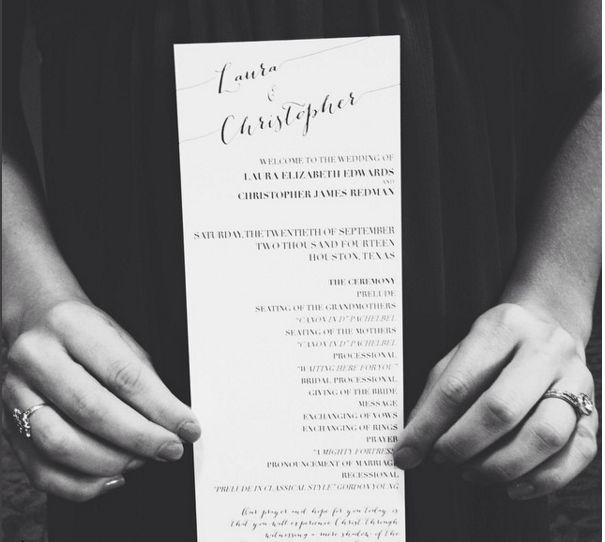 Laura
&
Christopher
WELCOME TO THE WEDDING OF
LAURA ELIZABETH EDWARDS
AND
CHRISTOPHER JAMES REDMAN
SATURDAY, THE TWENTIETH OF SEPTEMBER
TWO THOUSAND FOURTEEN
HOUSTON, TEXAS
THE CEREMONY
PRELUDE
SEATING OF THE GRANDMOTHERS
"CANON IN D" PACHELBEL
SEATING OF THE MOTHERS
"CANON IN D" PACHELBEL
PROCESSIONAL
"WAITING HERE FOR YOU"
BRIDAL PROCESSIONAL
GIVING OF THE BRIDE
MESSAGE
EXCHANGING OF VOWS
EXCHANGING OF RINGS
PRAYER
"A MIGHTY FORTRESS"
PRONOUNCEMENT OF MARRIAGE
RECESSIONAL
"PRELUDE IN CLASSICAL STYLE" GORDON YOUNG
Our prayer and hope for you today is
that you will experience Christ through
witnessing a mere shadow of the